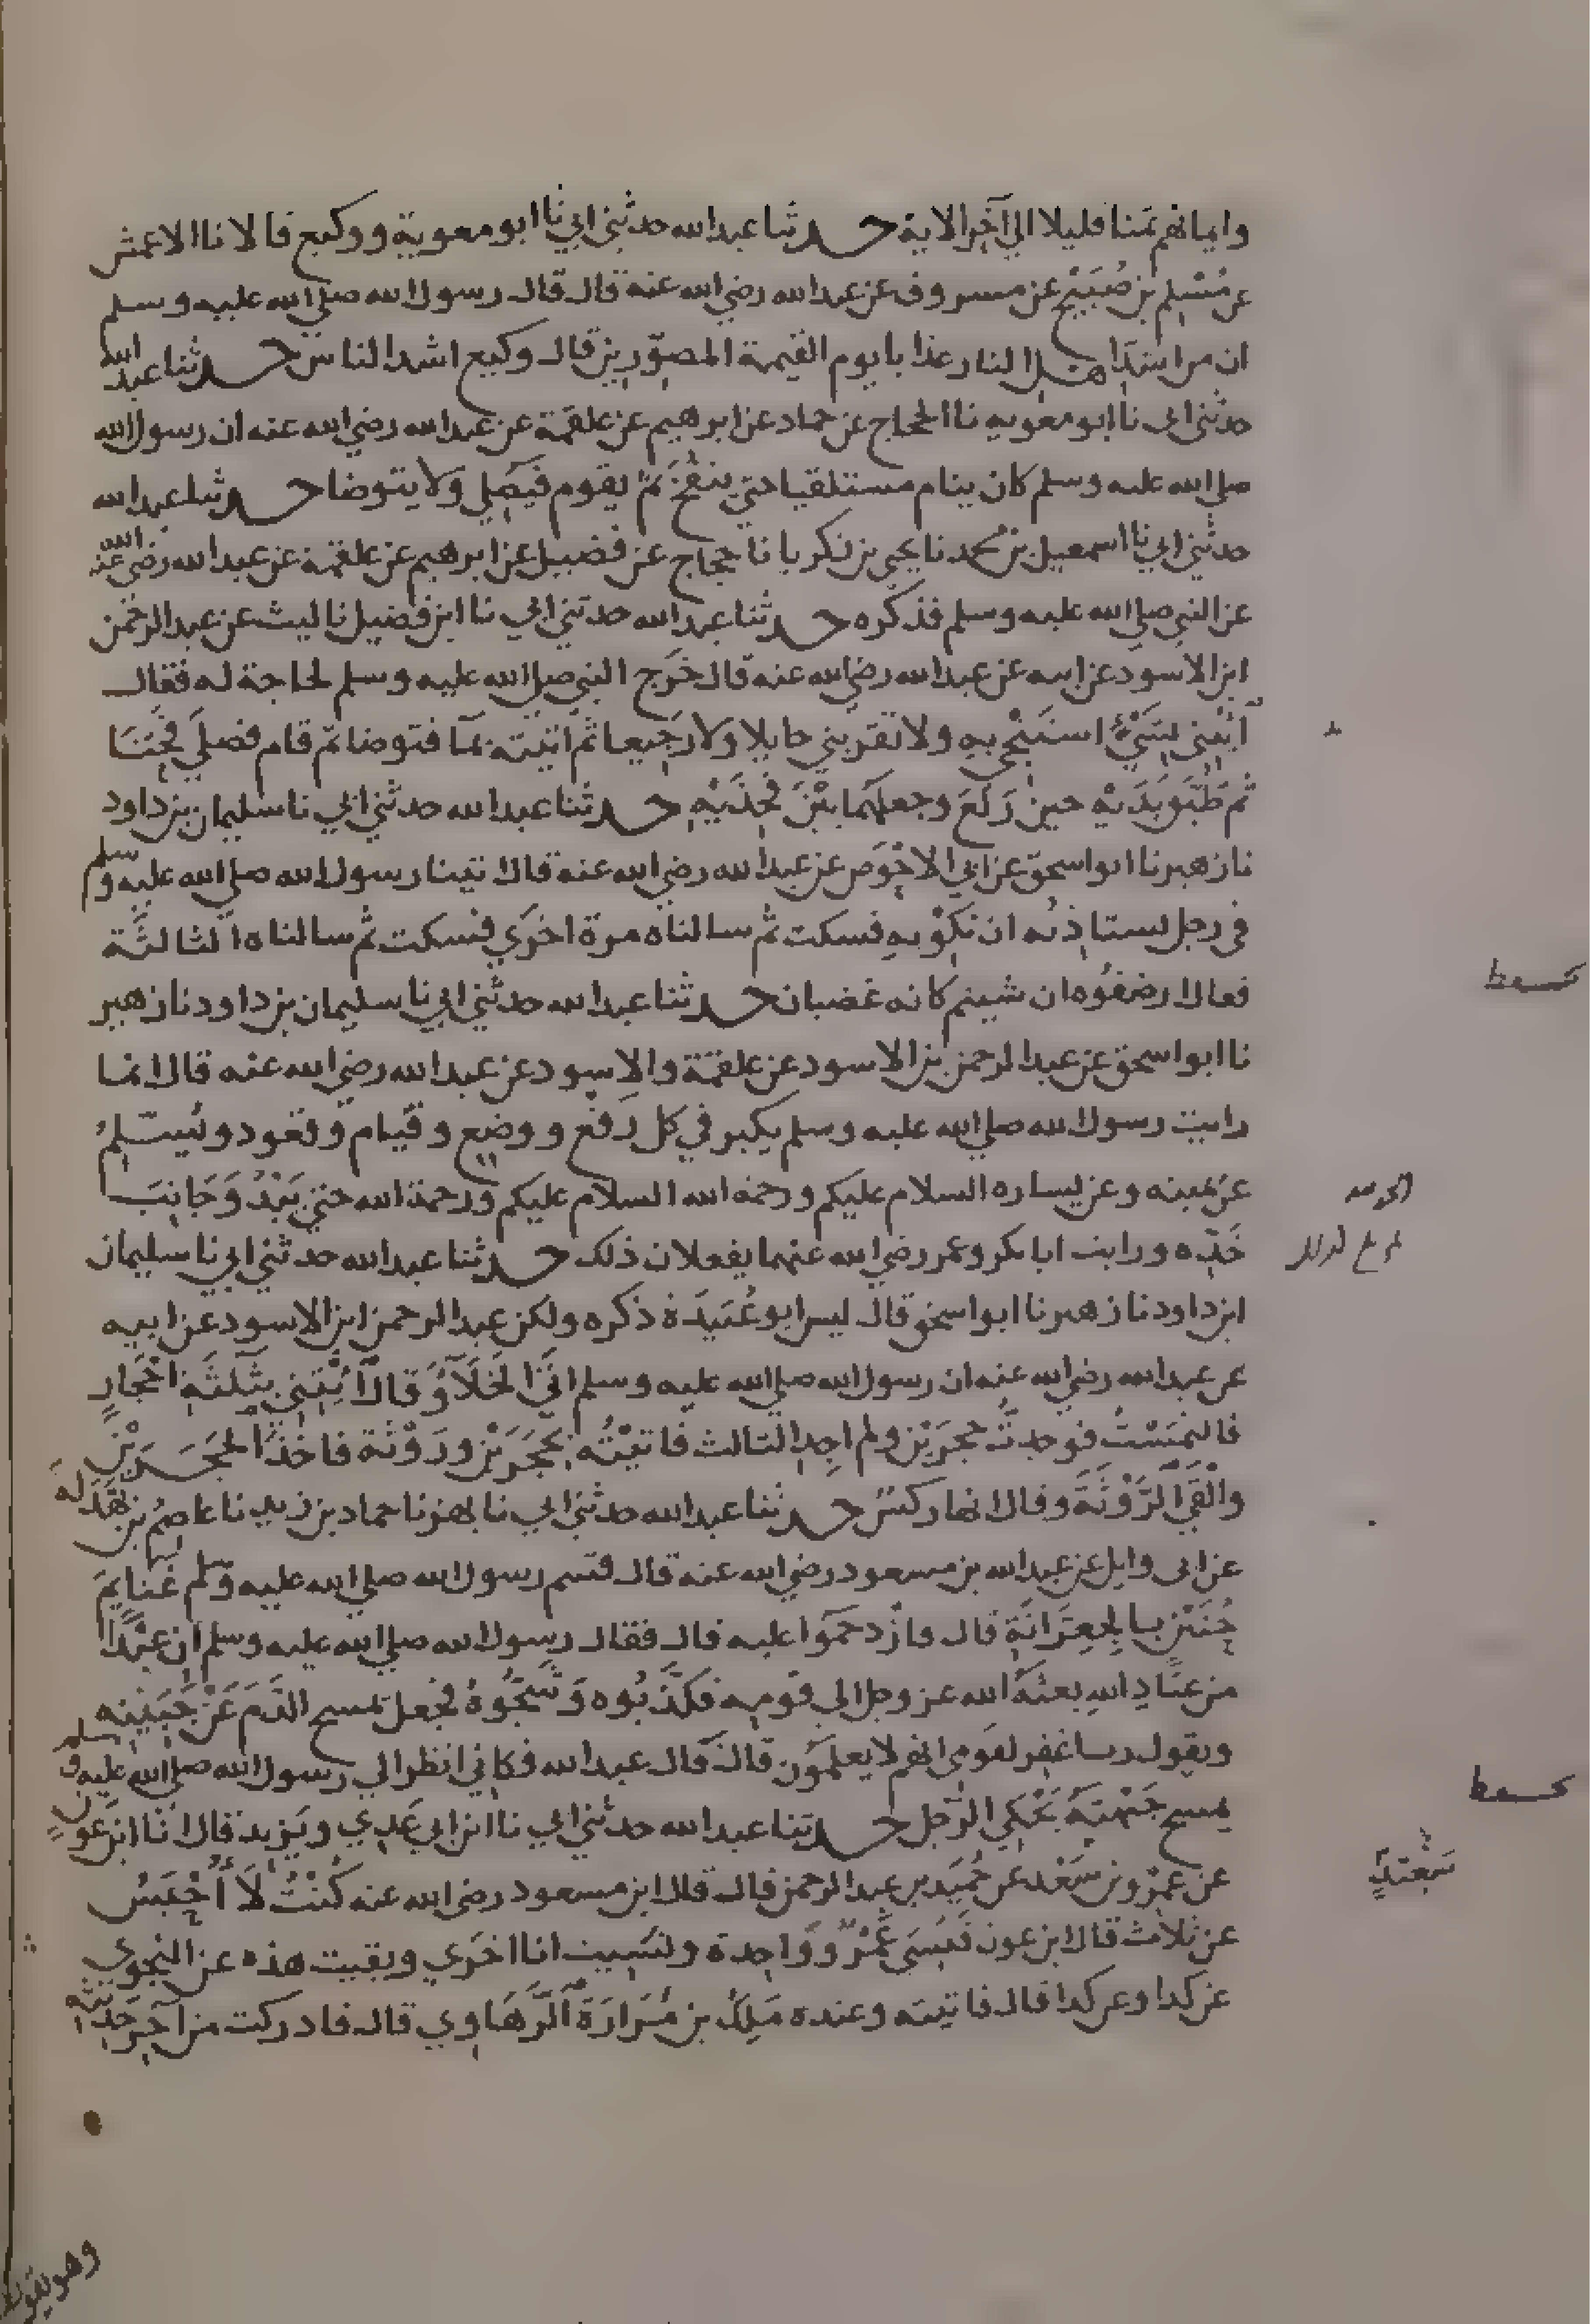 وايمانهم ثمنا قليلا الي آخر الاية حدثنا عبد الله حدثني ابي نا ابو معوية ووكيع قالا نا الاعمش
عن مُسْلم بن صُبَيْح عن مسروق عن عبد الله رضي الله عنه قال قال رسول الله صلي الله عليه وسلم
ان من اشدّ اهل النار عذابا يوم القيمة المصوّرين قال وكيع اشد الناس حدثنا عبد الله
حدثني ابي نا ابو معويه نا الحجاج عن حماد عن ابرهيم عن علقمة عن عبد الله رضي الله عنه ان رسول الله
صلي الله عليه وسلم كان ينام مستلقيا حتي ينفُخَ ثمّ يقوم فيُصَلي وَلا يتوضا حدثنا عبد الله
حدثني ابي نا اسمعيل بن محمد نا يحيى بن زكريا نا حجاج عن فضيل عن ابرهيم عن علقمة عن عبد الله رضي الله عنه
عن النبي صلي الله عليه وسلم فذكره حدثنا عبد الله حدثني ابي نا ابن فضيل نا ليث عن عبد الرحمن
ابن الاسود عن ابيه عن عبد الله رضي الله عنه قال خَرَج النبي صلي الله عليه وسلم لحاجة له فقال
ائتِني بشَيْءٍ استَنْجي بهِ ولا تقرّبني حايلا ولا رَجيعا ثم اتيته بمآ فتوضا ثم قام فصلّي فحَنَا
ثم طَبّقَ يَدَيْهِ حين رَكَعَ وجعلهما بَيْنَ فَخِذَيْهِ حدثنا عبد الله حدثني ابي نا سليمان بن داود
نا زهير نا ابو اسحق عن ابي الاحْوَص عن عبد الله رضي الله عنه قال اتينا رسول الله صلي الله عليه وسلم
في رجل نستاذنُه ان نكْويهِ فسكت ثم سالناه مرة اخرَي فسكت ثم سالناه الثالثَة
فقال ارضفُوه ان شيتم كانه غضبان حدثنا عبد الله حدثني ابي نا سليمان بن داود نا زهير
نا ابو اسحق عن عبد الرحمن بن الاسود عن علقمَة والاسود عن عبد الله رضي الله عنه قال انما
رايت رسول الله صلي الله عليه وسلم يكبر في كل رَفْع ووضع وقيام وقعود ويُسَلّمُ
عن يمينه وعن يساره السلام عليكم ورحمة الله السلام عليكم ورحمة الله حتي يَبْدُوَ جَانِبَ
خَدّه ورايت ابا بكر وعمر رضي الله عنهما يفعلان ذلك حدثنا عبد الله حدثني ابي نا سليمان
ابن داود نا زهير نا ابو اسحق قال ليس ابو عُبَيدَة ذكره ولكن عبد الرحمن ابن الاسود عن ابيه
عن عبد الله رضي الله عنه ان رسول الله صلي الله عليه وسلم اتَي الخَلَآءَ وَقال ائْتِني بثلثَةِ احْجَارٍ
فالتمَسْتُ فوجدتُ حجرَيْن ولم اجِدِ الثالث فاتيْتُه بحجَرَيْن ورَوْثة فاخَذ الحجَرَيْن
والْقَي الرَّوْثَةَ وقال انها ركسٌ حدثنا عبد الله حدثني ابي نا بهز نا حماد بن زيد نا عاصمُ بن بَهْدَلَةَ
عن ابي وايل عن عبد الله بن مسعود رضي الله عنه قال قسم رسول الله صلي الله عليه وسلم غَنَايمَ
حُنَيْن بالجِعِرَّانَةِ قال فازْدحَمُوا عليه قال فقال رسول الله صلي الله عليه وسلم اِن عَبْدًا
من عبَادِ اللهِ بعثَهُ الله عز وجل الي قومِهِ فكَذّبُوه وَشَجُّوهُ فجعل يمسح الدّمَ عَنْ جَبَيْنِه
ويقول رب اغفر لقومي انهم لا يعلمُون قال قال عبد الله فكاني انظر الي رسول الله صلي الله عليه وسلم
يمسح جَبْهتَهُ يَحْكي الرّجل حدثنا عبد الله حدثني ابي نا ابن ابي عَدِي ويَزيد قال انا ابن عَونٍ
عن عَمْرو بن سَعْد عن حُمَيد بن عبد الرحمن قال قال ابن مسعود رضي الله عنه كُنْتُ لَا اُحْبَسُ
عن ثلاث قال ابن عون فنَسِيَ عَمْرٌو وَاحِدة ونَسِيت انا اخرَي وبقيت هذه عن النجوي
عن كذا وعن كذا قال فاتيته وعنده مَلِكُ بن مُرَارَةَ الرَّهَاوِي قال فادركت من آخِرِ حَدِيثِهِ
سَعْيدٍ
وهو يقول